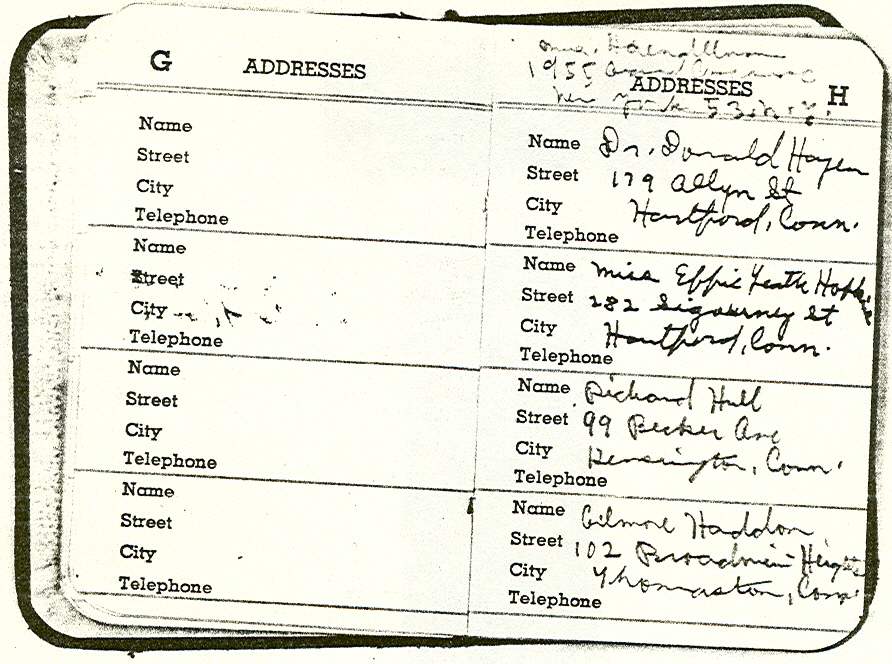 G ADDRESSES
Name
Street
City
Telephone
Name
Street
City
Telephone
Name
Street
City
Telephone
Name
Street
City
Telephone
1955
ADDRESSES H
New York 53 N.Y.
Name Dr. Donald Hayen
Street 179 Allyn St
City Hartford, Conn.
Telephone
Name Miss Effie
Street 282 Sigourney St
City Hartford, Conn.
Telephone
Name Richard Hull
Street 99 Becker Ave
City Kensington, Conn.
Telephone
Name Gilmore Haddon
Street 102 Heights
City Thomaston, Conn.
Telephone